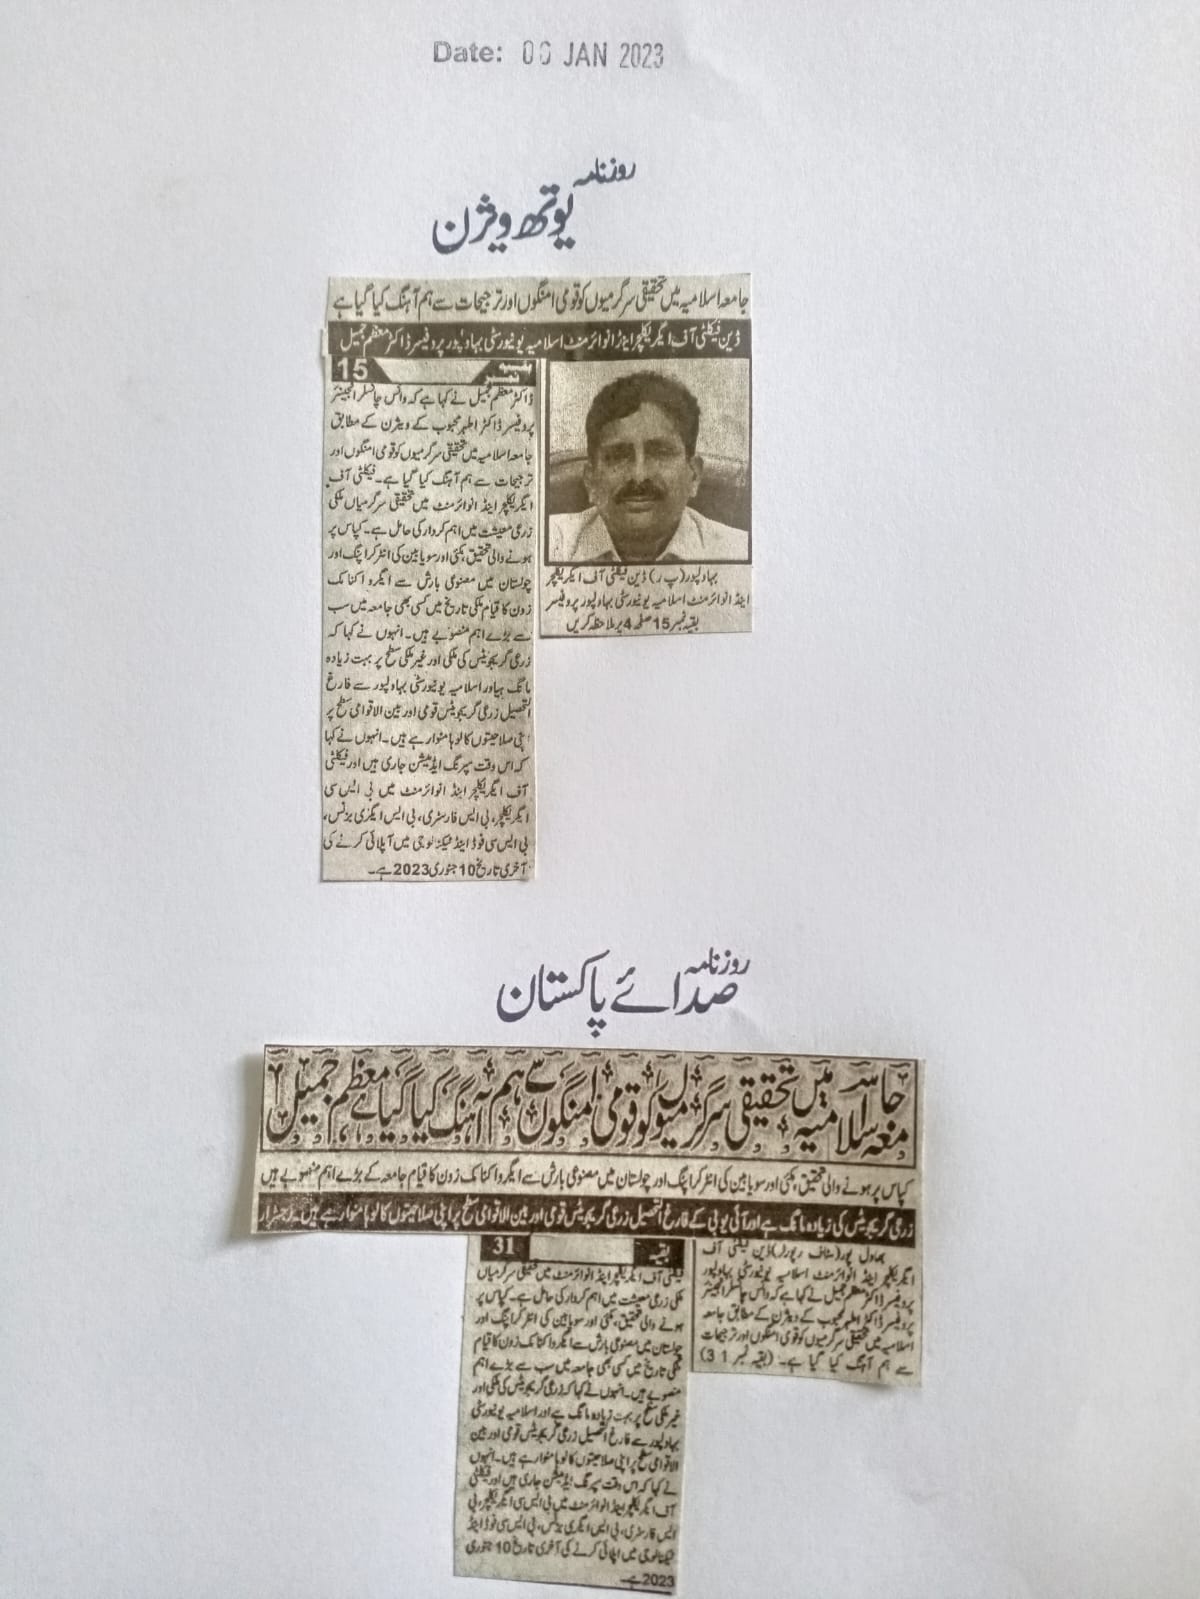 Date: 06 JAN 2023
روزنامہ
یوتھ ویژن
جامعہ اسلامیہ میں تحقیقی سرگرمیوں کو قومی امنگوں اور ترجیحات سے ہم آہنگ کیا گیا ہے
ڈین فیکلٹی آف ایگریکلچر اینڈ انوائرمنٹ اسلامیہ یونیورسٹی بہاولپور پروفیسر ڈاکٹر معظم جمیل
بہاولپور (پ ر) ڈین فیکلٹی آف ایگریکلچر
اینڈ انوائرمنٹ اسلامیہ یونیورسٹی بہاولپور پروفیسر
بقیہ نمبر 15 صفحہ 4 پر ملاحظہ کریں
بقیہ نمبر 15
ڈاکٹر معظم جمیل نے کہا ہے کہ وائس چانسلر انجینئر
پروفیسر ڈاکٹر اطہر محبوب کے ویژن کے مطابق
جامعہ اسلامیہ میں تحقیقی سرگرمیوں کو قومی امنگوں اور
ترجیحات سے ہم آہنگ کیا گیا ہے۔ فیکلٹی آف
ایگریکلچر اینڈ انوائرمنٹ میں تحقیقی سرگرمیاں ملکی
زرعی معیشت میں اہم کردار کی حامل ہے۔ کپاس پر
ہونے والی تحقیق، مکئی اور سویابین کی انٹر کراپنگ اور
چولستان میں مصنوعی بارش سے ایگرو اکنامک
زون کا قیام ملکی تاریخ میں کسی بھی جامعہ میں سب
سے بڑے اہم منصوبے ہیں۔ انہوں نے کہا کہ
زرعی گریجویٹس کی ملکی اور غیر ملکی سطح پر بہت زیادہ
مانگ ہیاور اسلامیہ یونیورسٹی بہاولپور سے فارغ
التحصیل زرعی گریجویٹس قومی اور بین الاقوامی سطح پر
اپنی صلاحیتوں کا لوہا منوا رہے ہیں۔ انہوں نے کہا
کہ اس وقت سپرنگ ایڈمیشن جاری ہیں اور فیکلٹی
آف ایگریکلچر اینڈ انوائرمنٹ میں بی ایس سی
ایگریکلچر، بی ایس فارسٹری، بی ایس ایگری بزنس،
بی ایس سی فوڈ اینڈ ٹیکنالوجی میں اپلائی کرنے کی
آخری تاریخ 10 جنوری 2023 ہے۔
روزنامہ
صدائے پاکستان
جامعہ اسلامیہ میں تحقیقی سرگرمیوں کو قومی امنگوں سے ہم آہنگ کیا گیا ہے، معظم جمیل
کپاس پر ہونے والی تحقیق، مکئی اور سویابین کی انٹر کراپنگ اور چولستان میں مصنوعی بارش سے ایگرو اکنامک زون کا قیام جامعہ کے بڑے اہم منصوبے ہیں
زرعی گریجویٹس کی زیادہ مانگ ہے اور آئی یو بی کے فارغ التحصیل زرعی گریجویٹس قومی اور بین الاقوامی سطح پر اپنی صلاحیتوں کا لوہا منوا رہے ہیں۔ رجسٹرار
بھاول پور (سٹاف رپورٹر) ڈین فیکلٹی آف
ایگریکلچر اینڈ انوائرمنٹ اسلامیہ یونیورسٹی بہاولپور
پروفیسر ڈاکٹر معظم جمیل نے کہا ہے کہ وائس چانسلر انجینئر
پروفیسر ڈاکٹر اطہر محبوب کے ویژن کے مطابق جامعہ
اسلامیہ میں تحقیقی سرگرمیوں کو قومی امنگوں اور ترجیحات
سے ہم آہنگ کیا گیا ہے۔ (بقیہ نمبر 31)
بقیہ 31
فیکلٹی آف ایگریکلچر اینڈ انوائرمنٹ میں تحقیقی سرگرمیاں
ملکی زرعی معیشت میں اہم کردار کی حامل ہے۔ کپاس پر
ہونے والی تحقیق، مکئی اور سویابین کی انٹر کراپنگ اور
چولستان میں مصنوعی بارش سے ایگرو اکنامک زون کا قیام
ملکی تاریخ میں کسی بھی جامعہ میں سب سے بڑے اہم
منصوبے ہیں۔ انہوں نے کہا کہ زرعی گریجویٹس کی ملکی اور
غیر ملکی سطح پر بہت زیادہ مانگ ہے اور اسلامیہ یونیورسٹی
بہاولپور سے فارغ التحصیل زرعی گریجویٹس قومی اور بین
الاقوامی سطح پر اپنی صلاحیتوں کا لوہا منوا رہے ہیں۔ انہوں
نے کہا کہ اس وقت سپرنگ ایڈمیشن جاری ہیں اور فیکلٹی
آف ایگریکلچر اینڈ انوائرمنٹ میں بی ایس سی ایگریکلچر، بی
ایس فارسٹری، بی ایس ایگری بزنس، بی ایس سی فوڈ اینڈ
ٹیکنالوجی میں اپلائی کرنے کی آخری تاریخ 10 جنوری
2023 ہے۔